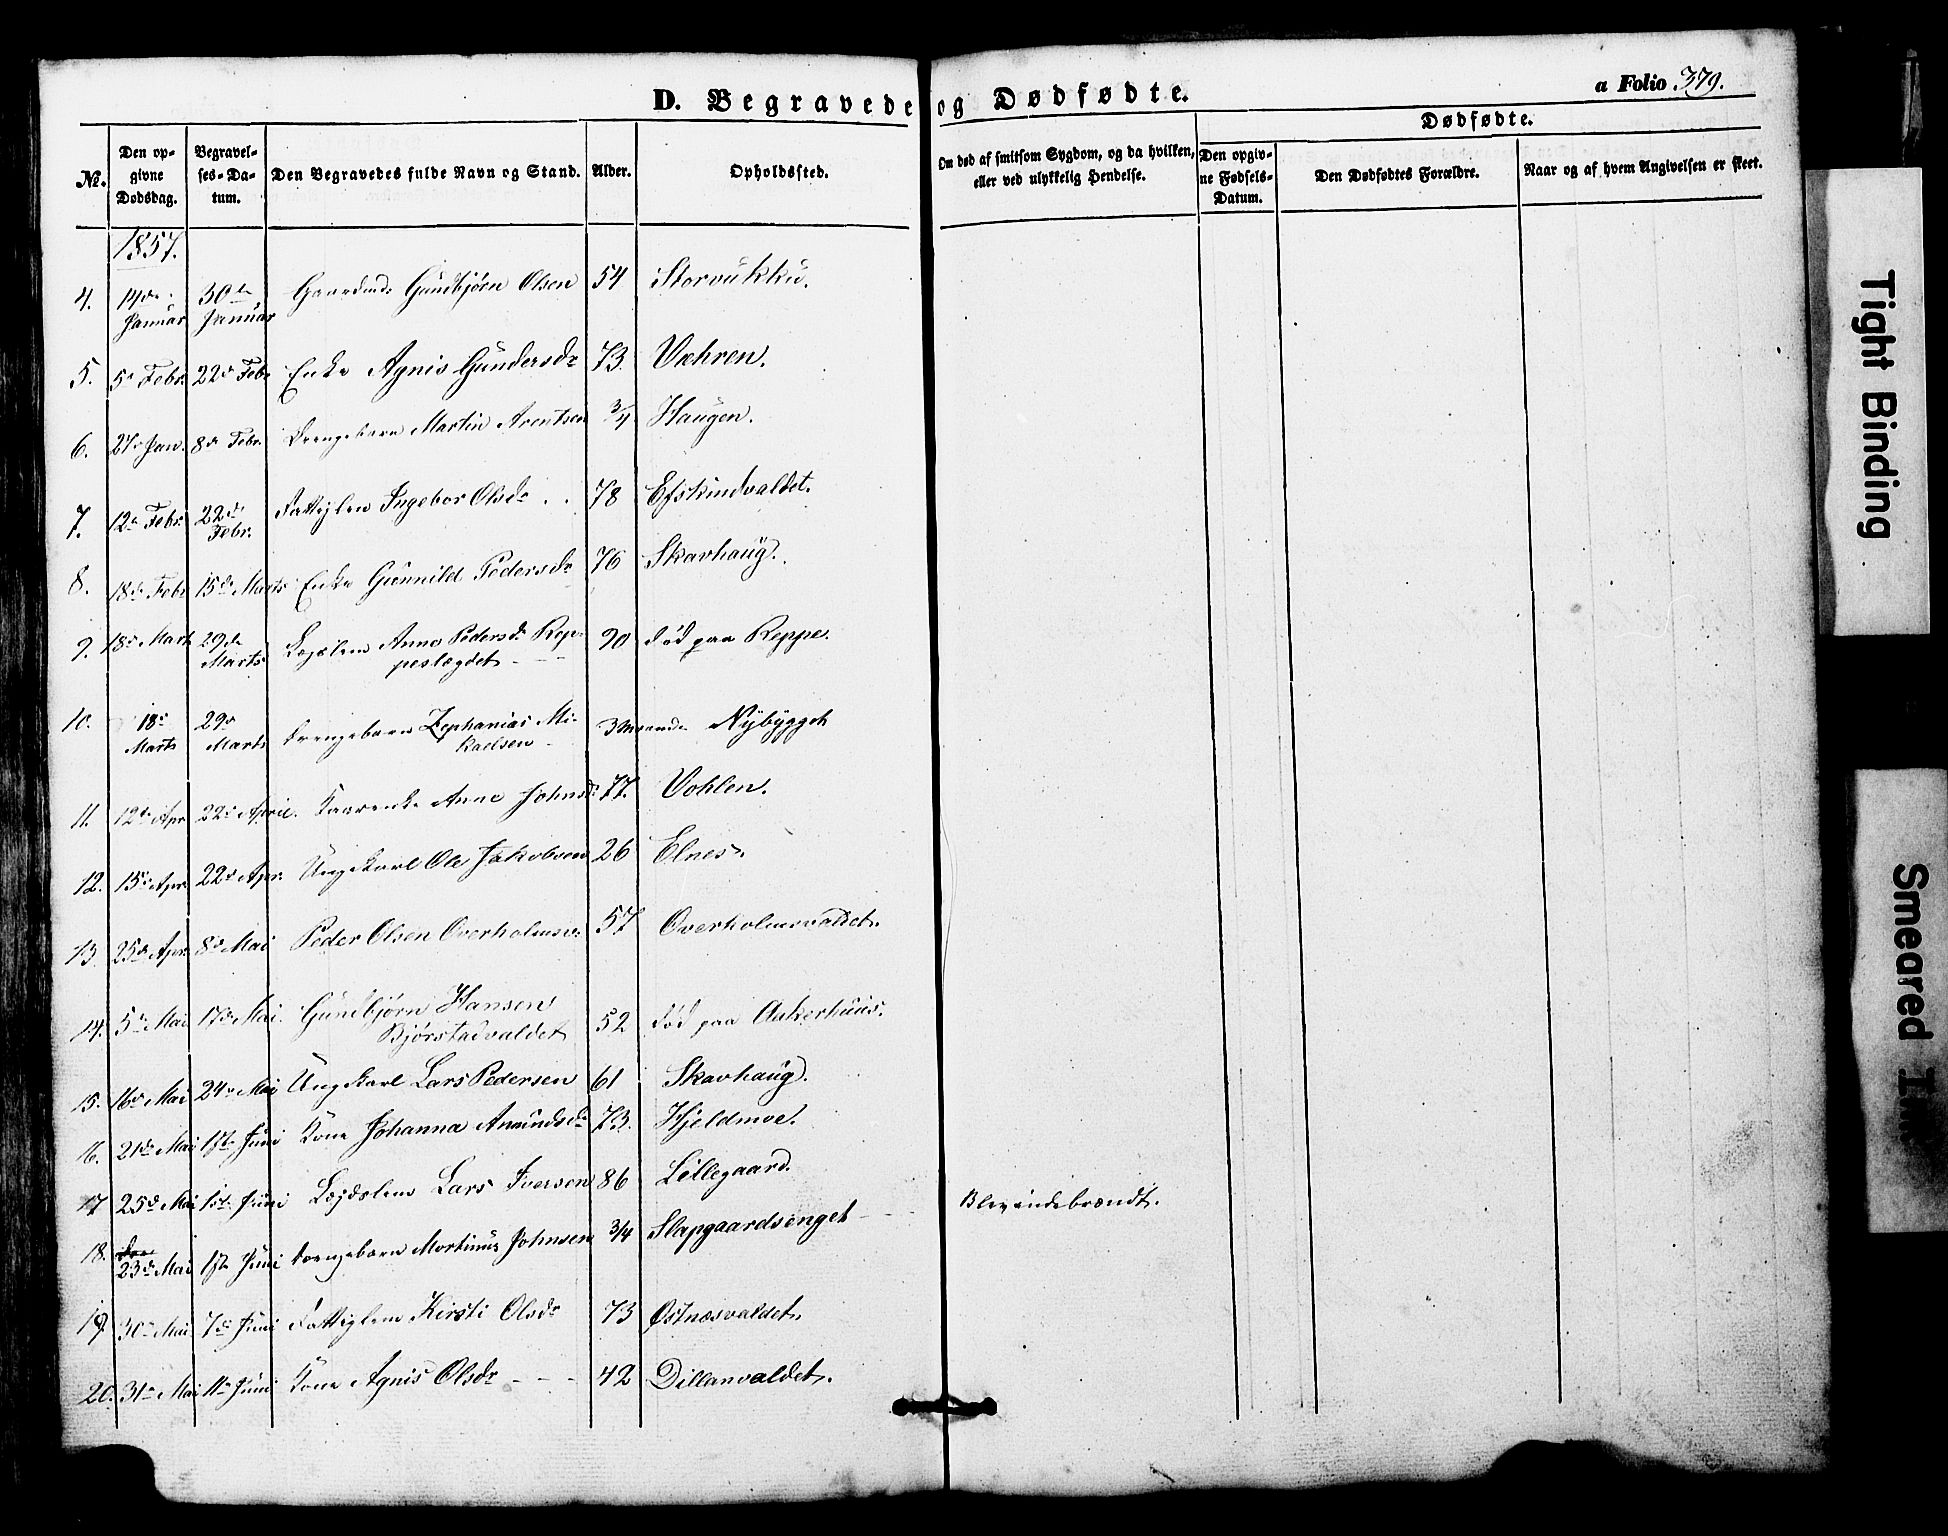 D. Begravede og Dødfødte.
a Folio 379.
Dødfødte.
No. Den opgivne Dødsdag. Begravelses-Datum. Den Begravedes fulde Navn og Stand. Alder. Opholdssted. Om død af smitsom Sygdom, og da hvilken, eller ved ulykkelig Hendelse. Den opgivne Fødsels-Datum. Den Dødfødtes Forældre. Naar og af hvem Angivelsen er skeet.
1857.
4. 14de Januar 30te Januar Gaardmd: Gundbjörn Olsen 54 Storvukku.
5. 5e Febr. 22de Febr Enke Agnis Gundersdr 73. Væhren.
6. 27e Jan. 8de Febr. Drengebarn Martin Arentsen 3/4 Haugen.
7. 12te Febr. 22de Febr. Fattiglem Ingebor Olsdr 78 Efskindvaldet.
8. 18de Febr 15de Marts Enke Gunnild Pedersdr 76 Skavhaug.
9. 18de Mart 29de Marts Anne Pedersdr Reppeslægdet 90 død paa Reppe.
10. 18e Marts 29de Marts Drengebarn Zephanias Mikaelsen 3 Maaneder Nybygget
11. 12te Apr 22de April. Kaarenke Anne Johnsdr 77. Vohlen.
12. 15de Apr. 22de Apr. Ungkarl Ole Jakobsen 26 Elnes.
13. 25de Apr. 8de Mai Peder Olsen Overholmsv. 57 Overholmsvaldet.
14. 5te Mai 17de Mai. Gundbjörn Hansen Bjørstadvaldet 52 død paa Aakerhuus.
15. 16de Mai 24de Mai Ungkarl Lars Pedersen 61 Skavhaug.
16. 21de Mai 1ste Juni Kone Johanna Amundsdr 73. Hjeldmoe.
17 25de Mai 1ste Juni Lægdslem Lars Iversen 86 Lillegaard.
18. 23de Mai 1ste Juni Drengebarn Mortinus Johnsen 3/4 Slapgaardsenget Blev indebrændt.
19. 30te Mai 7de Juni Fattiglem Kirsti Olsdr 73 Østnæsvaldet.
20. 31te Mai 11te Juni Kone Agnis Olsdr 42 Dillanvaldet.
Tight Binding
Smeared